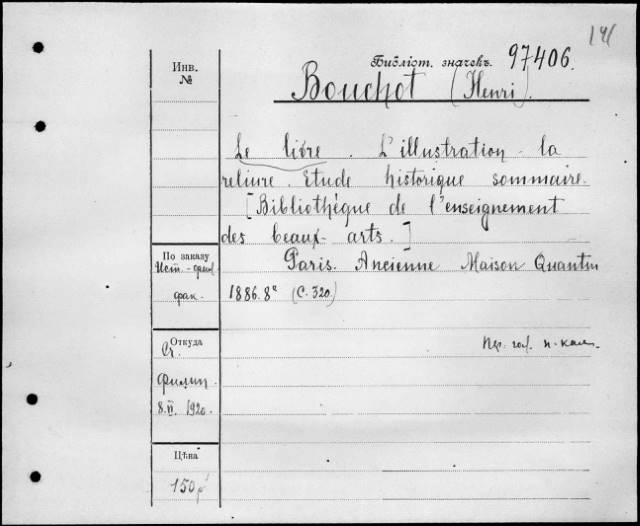 141
Инв.
№
Библіот. значекъ. 97406.
Bouchot (Henri).
Le livre. L'illustration - la
reliure. Etude historique sommaire.
[Bibliothèque de l'enseignement
des beaux-arts.]
По заказу
Ист.-фил.
фак.
Paris. Ancienne Maison Quantin
1886. 8° (С. 320)
Откуда
Ст.
Филип.
8.II. 1920.
Пер. гол. п. кал.
Цѣна
150 р